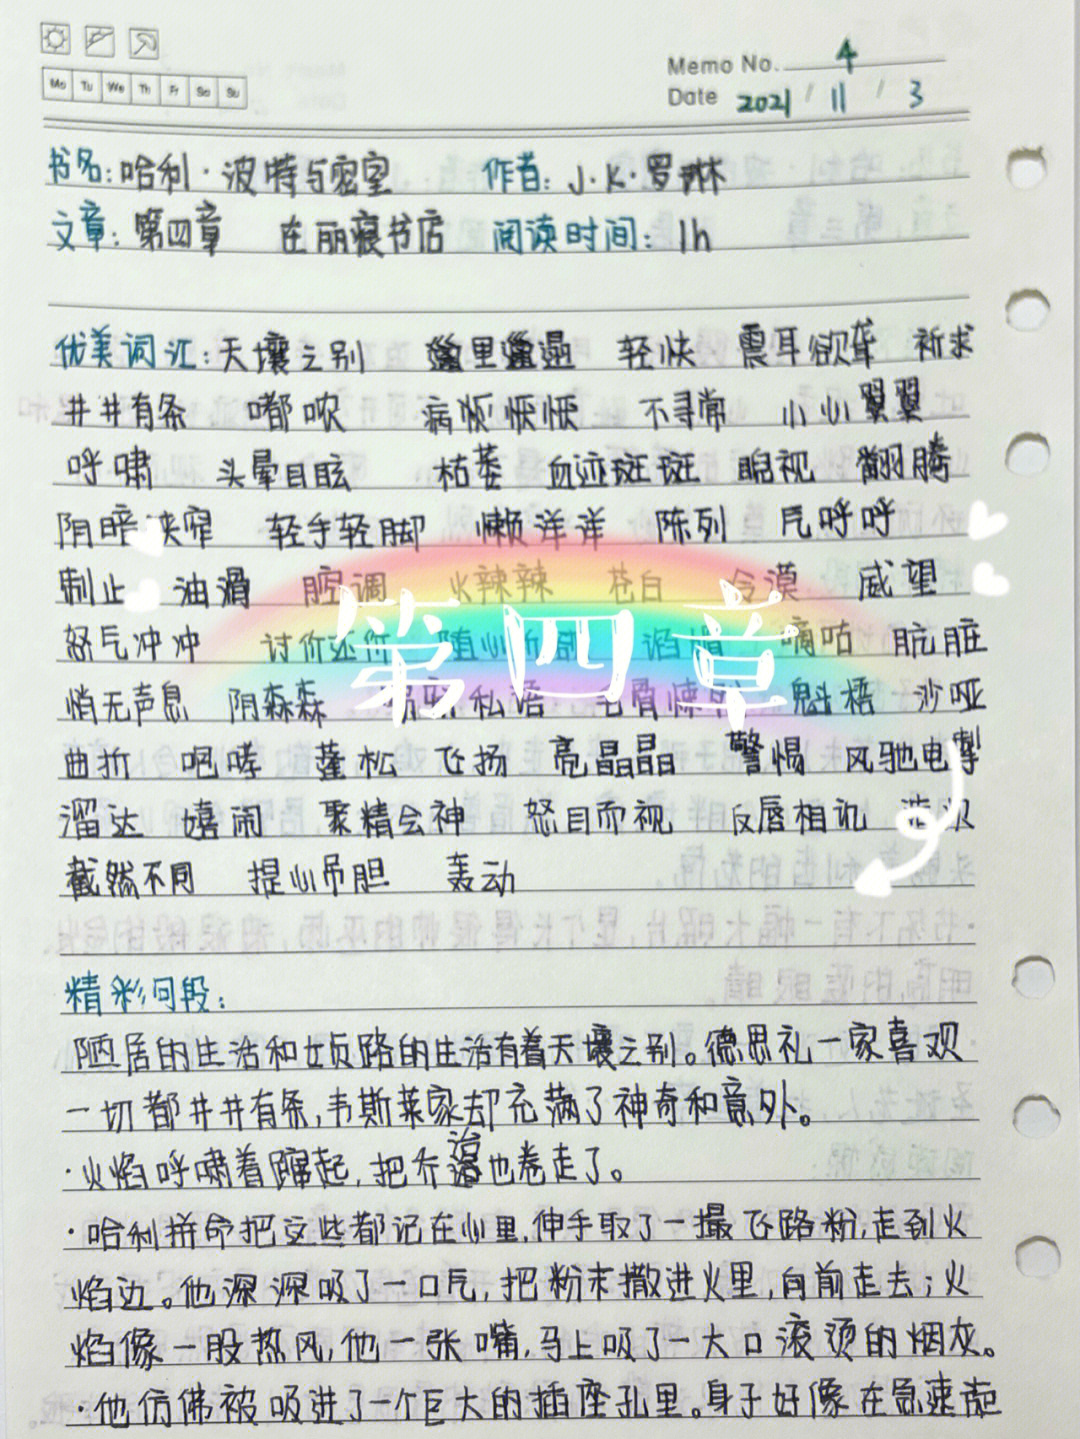 Mo Tu We Th Fr Sa Su
Memo No. 4
Date 2021 / 11 / 3
书名:哈利·波特与密室 作者:J·K·罗琳
文章:第四章 在丽痕书店 阅读时间:1h
优美词汇:天壤之别 邋里邋遢 轻快 震耳欲聋 祈求
井井有条 嘟哝 病恹恹 不寻常 小心翼翼
呼啸 头晕目眩 枯萎 血迹斑斑 睨视 翻腾
阴暗狭窄 轻手轻脚 懒洋洋 陈列 气呼呼
制止 油滑 腔调 火辣辣 苍白 冷漠 威望
怒气冲冲 讨价还价 随心所欲 谄媚 嘀咕 肮脏
悄无声息 阴森森 私语 毛骨悚然 魁梧 沙哑
第四章
曲折 咆哮 蓬松 飞扬 亮晶晶 警惕 风驰电掣
溜达 嬉闹 聚精会神 怒目而视 反唇相讥
截然不同 提心吊胆 轰动
精彩句段:
陋居的生活和女贞路的生活有着天壤之别。德思礼一家喜欢
一切都井井有条,韦斯莱家却充满了神奇和意外。
·火焰呼啸着蹿起,把乔治也卷走了。
·哈利拼命把这些都记在心里,伸手取了一撮飞路粉,走到火
焰边。他深深吸了一口气,把粉末撒进火里,向前走去;火
焰像一股热风,他一张嘴,马上吸了一大口滚烫的烟灰。
·他仿佛被吸进了一个巨大的插座孔里。身子好像在急速旋